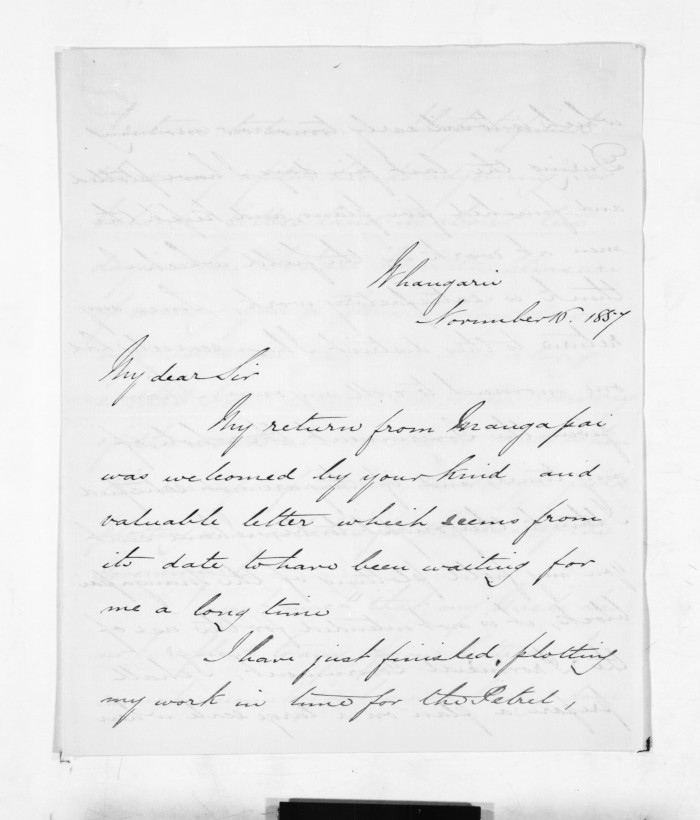 Whangarii
November 16. 1857
My dear Sir
My return from Mangapai
was welcomed by your kind and
valuable letter which seems from
its date to have been waiting for
me a long time
I have just finished, plotting
my work in time for the Petrel,